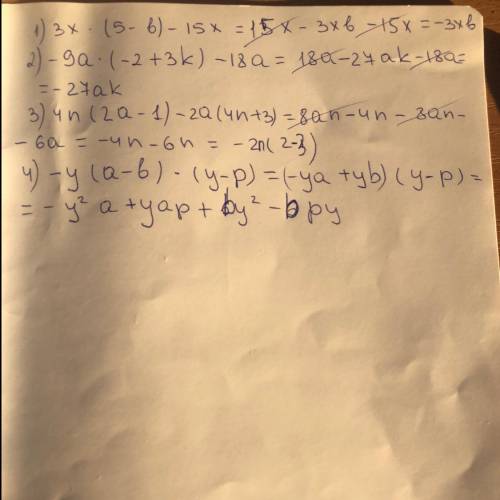 1) 3x · (5-b) - 15x = 15x - 3xb - 15x = -3xb
2) -9a · (-2+3k) - 18a = 18a - 27ak - 18a =
= -27ak
3) 4n(2a-1) - 2a(4n+3) = 8an - 4n - 8an -
- 6a = -4n - 6n = -2n(2-3)
4) -y(a-b) · (y-p) = (-ya+yb)(y-p) =
= -y² a + yap + by² - bpy